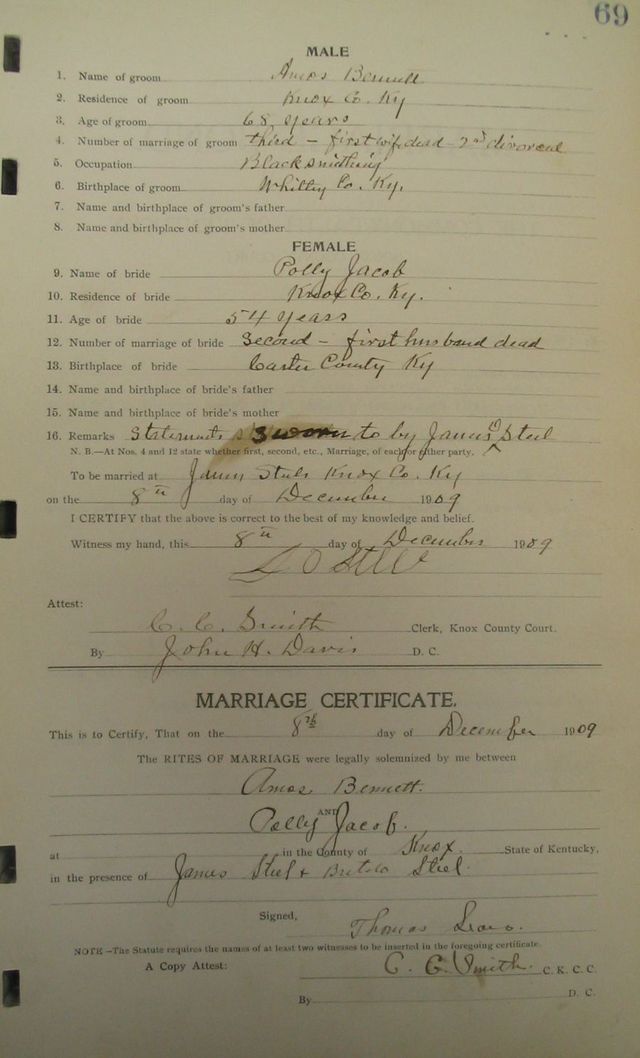 69
MALE
1. Name of groom Amos Bennett
2. Residence of groom Knox Co. Ky
3. Age of groom 68 years
4. Number of marriage of groom third - first wife dead 2nd divorced
5. Occupation Blacksmithing
6. Birthplace of groom Whitley Co. Ky.
7. Name and birthplace of groom's father
8. Name and birthplace of groom's mother
FEMALE
9. Name of bride Polly Jacob
10. Residence of bride Knox Co. Ky.
11. Age of bride 54 years
12. Number of marriage of bride Second - first husband dead
13. Birthplace of bride Carter County Ky
14. Name and birthplace of bride's father
15. Name and birthplace of bride's mother
16. Remarks Statements sworn to by James Steel
N. B.—At Nos. 4 and 12 state whether first, second, etc., Marriage, of each or either party.
To be married at James Steels Knox Co. Ky
on the 8th day of December 1909
I CERTIFY that the above is correct to the best of my knowledge and belief.
Witness my hand, this 8th day of December 1909
Attest:
C. C. Smith Clerk, Knox County Court.
By John H. Davis D. C.
MARRIAGE CERTIFICATE.
This is to Certify, That on the 8th day of December 1909
The RITES OF MARRIAGE were legally solemnized by me between
Amos Bennett.
AND
Polly Jacob.
at in the County of Knox. State of Kentucky,
in the presence of James Steel & Steel.
Signed,
Thomas
NOTE—The Statute requires the names of at least two witnesses to be inserted in the foregoing certificate.
A Copy Attest: C. C. Smith. C. K. C. C.
By D. C.